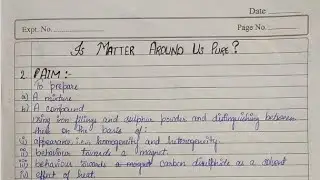 Date
Expt. No.
Page No.
Is Matter Around Us Pure?
2. AIM :-
To prepare
a) A mixture
b) A compound
using iron filings and sulphur powder and distinguishing between
them on the basis of :
i) appearance, i.e., homogeneity and heterogeneity.
ii) behaviour towards a magnet.
iii) behaviour towards a magnet carbon disulphide as a solvent
iv) effect of heat.